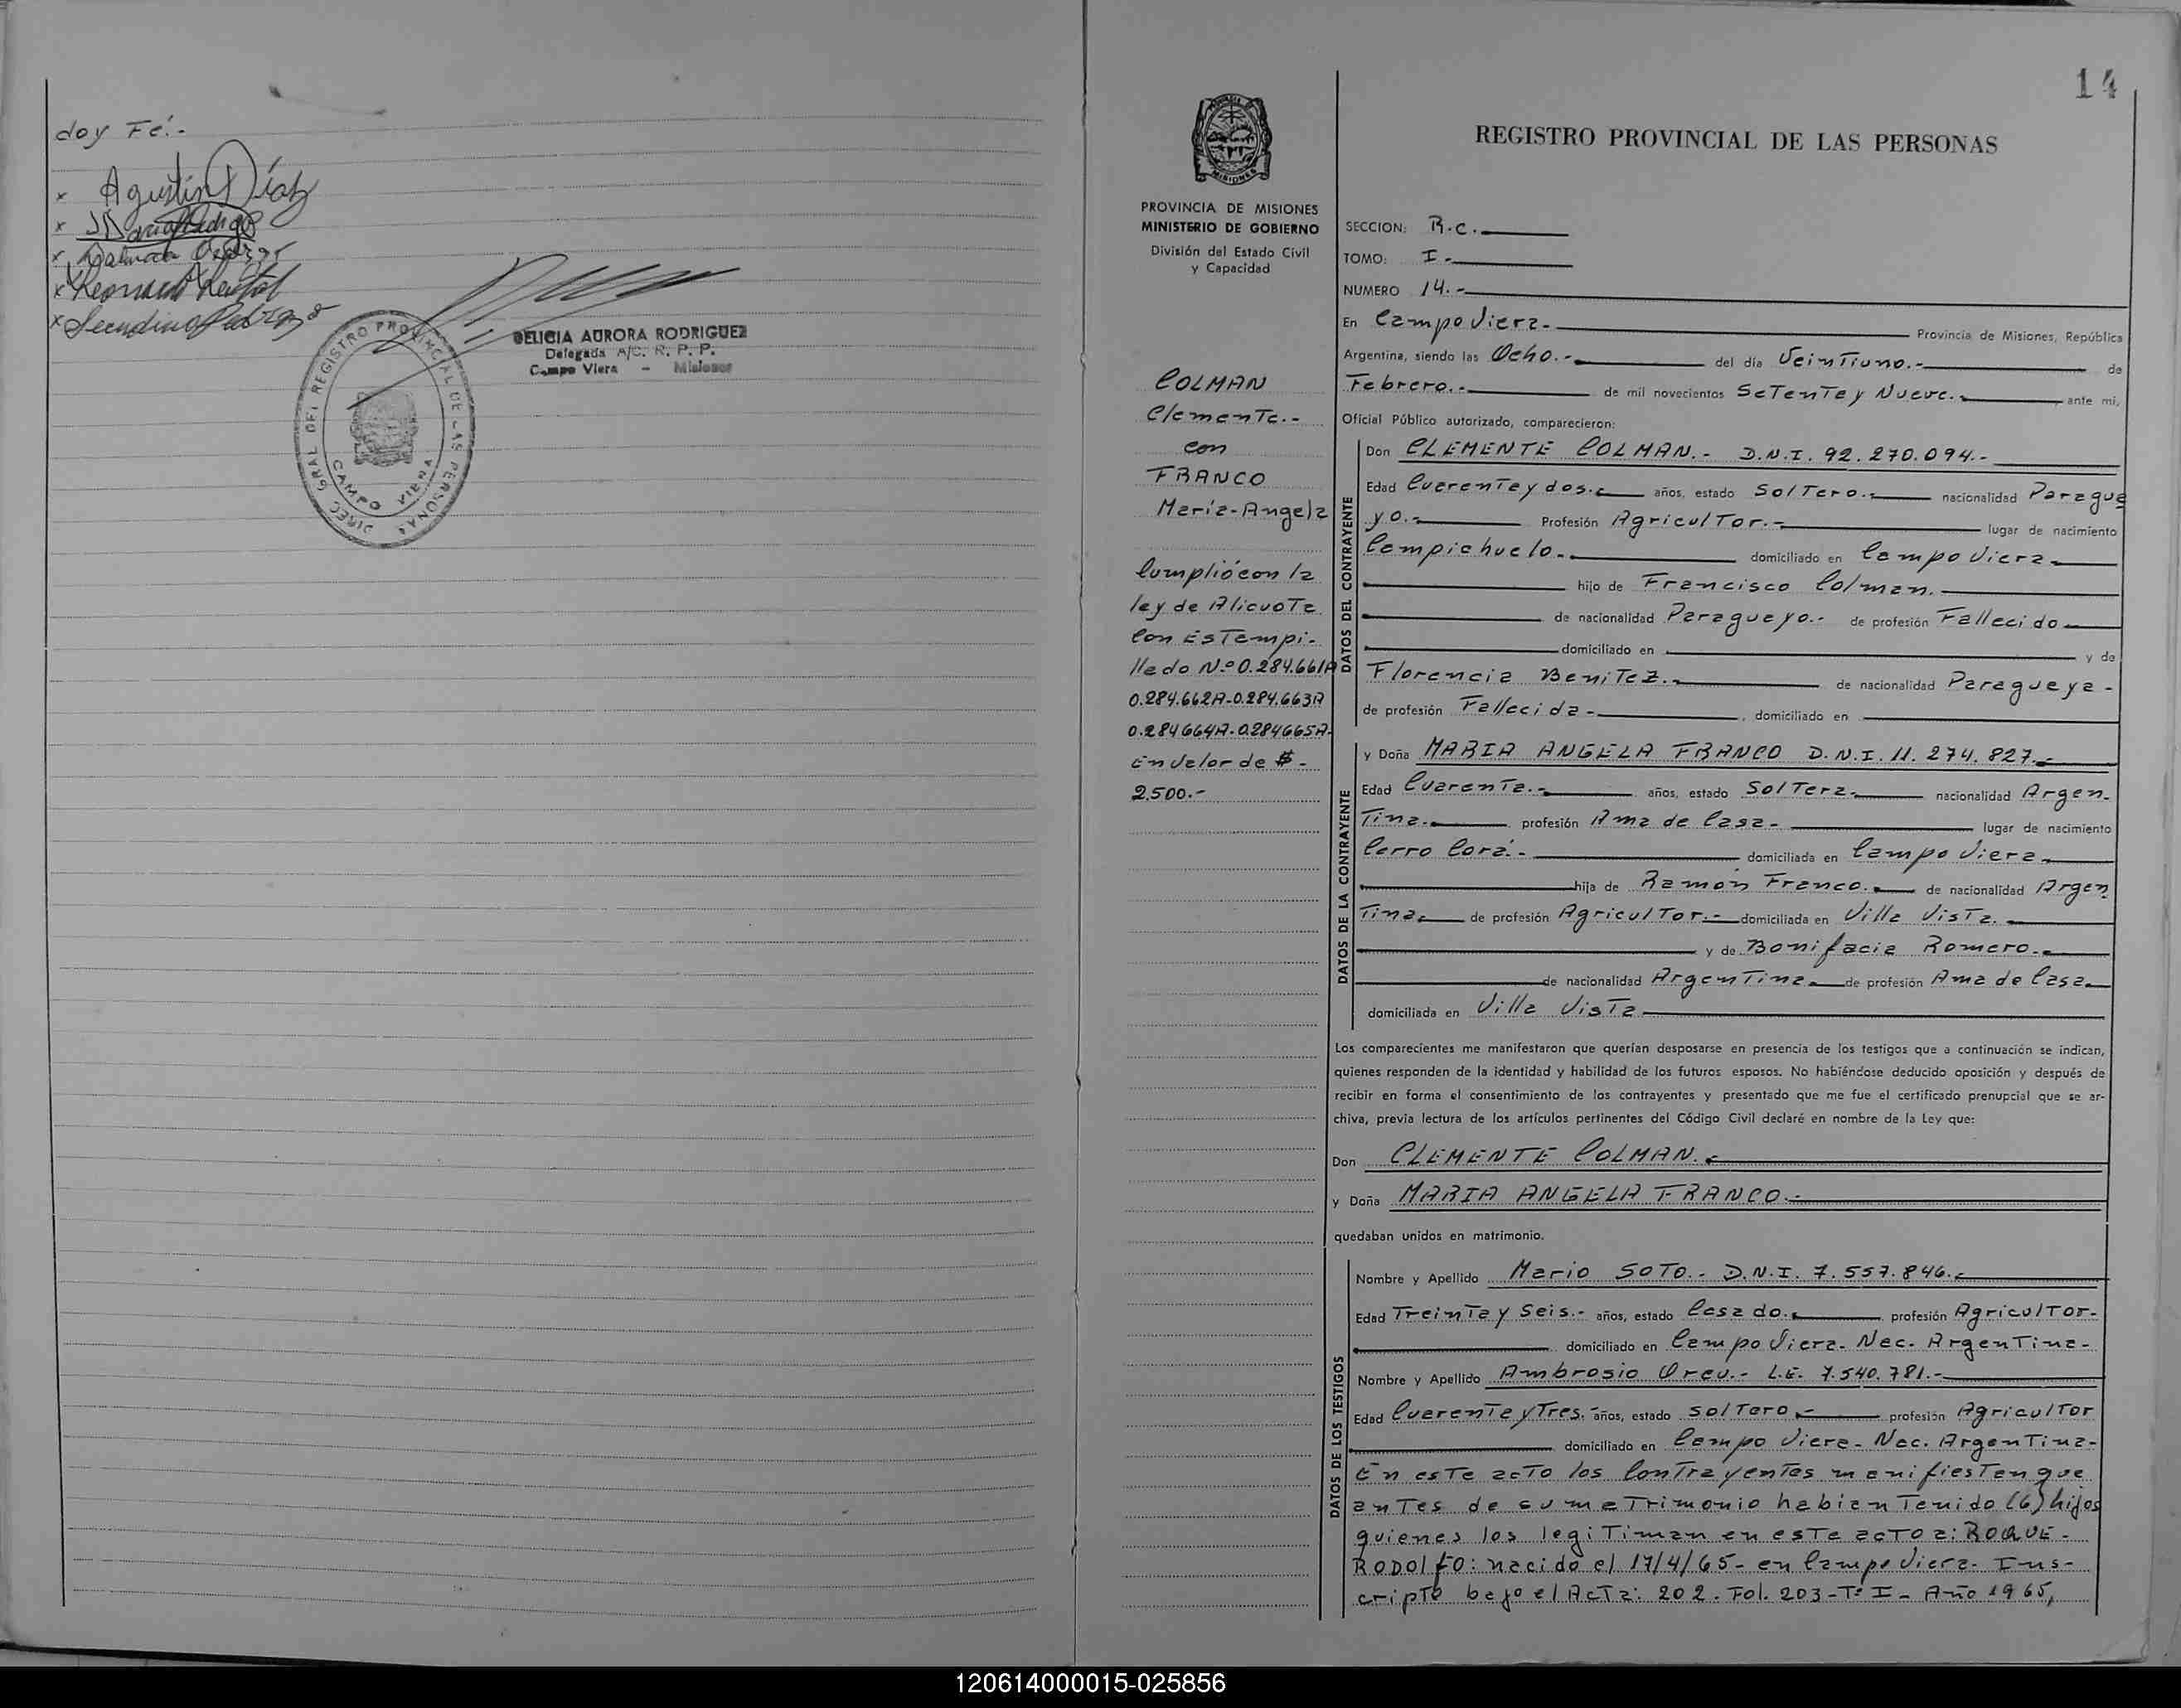 doy Fé.-
x Agustin Díaz
x
x
x Leonardo
x Secundino
DIREC. GRAL. DEL REGISTRO PROVINCIAL DE LAS PERSONAS
CAMPO VIERA
DELICIA AURORA RODRIGUEZ
Delegada A/C. R. P. P.
Campo Viera - Misiones
14
PROVINCIA DE MISIONES
MINISTERIO DE GOBIERNO
División del Estado Civil
y Capacidad
COLMAN
Clemente.-
con
FRANCO
María-Angela
Cumplió con la
ley de Alicuota
Con Estampi-
llado N.º 0.284.661A
0.284.662A-0.284.663A
0.284664A-0.284665A-
En valor de $-
2.500.-
REGISTRO PROVINCIAL DE LAS PERSONAS
SECCION: R.C.
TOMO: I-
NUMERO 14.-
En Campo Viera- Provincia de Misiones, República
Argentina, siendo las Ocho.- del día Veintiuno.- de
Febrero.- de mil novecientos Setenta y Nueve.- ante mi,
Oficial Público autorizado, comparecieron:
DATOS DEL CONTRAYENTE
Don CLEMENTE COLMAN.- D.N.I. 92.270.094.-
Edad Cuarenta y dos.- años, estado Soltero.- nacionalidad Paragua
yo.- Profesión Agricultor.- lugar de nacimiento
Campichuelo.- domiciliado en Campo Viera-
hijo de Francisco Colman.
de nacionalidad Paraguayo.- de profesión Fallecido
domiciliado en y de
Florencia Benitez.- de nacionalidad Paraguaya-
de profesión Fallecida- , domiciliado en
DATOS DE LA CONTRAYENTE
y Doña MARIA ANGELA FRANCO D.N.I. 11.274.827.-
Edad Cuarenta.- años, estado Soltera- nacionalidad Argen-
tina.- profesión Ama de Casa- lugar de nacimiento
Cerro Corá.- domiciliada en Campo Viera
hija de Ramón Franco.- de nacionalidad Argen
tina- de profesión Agricultor.- domiciliada en Villa Vista.
y de Bonifacia Romero.-
de nacionalidad Argentina de profesión Ama de Casa
domiciliada en Villa Vista
Los comparecientes me manifestaron que querían desposarse en presencia de los testigos que a continuación se indican,
quienes responden de la identidad y habilidad de los futuros esposos. No habiéndose deducido oposición y después de
recibir en forma el consentimiento de los contrayentes y presentado que me fue el certificado prenupcial que se ar-
chiva, previa lectura de los artículos pertinentes del Código Civil declaré en nombre de la Ley que:
Don CLEMENTE COLMAN.-
y Doña MARIA ANGELA FRANCO.-
quedaban unidos en matrimonio.
DATOS DE LOS TESTIGOS
Nombre y Apellido Mario SOTO.- D.N.I. 7.557.846.-
Edad Treinta y Seis.- años, estado Casado.- profesión Agricultor-
domiciliado en Campo Viera- Nac. Argentina-
Nombre y Apellido Ambrosio Oreu.- L.E. 7.540.781.-
Edad Cuarenta y Tres.- años, estado soltero.- profesión Agricultor
domiciliado en Campo Viera- Nac. Argentina-
En este acto los Contrayentes manifiestan que
antes de su matrimonio habian Tenido (6) hijos
quienes los legitiman en este acto a: ROQUE-
RODOLFO: nacido el 17/4/65- en Campo Viera- Ins-
cripto bajo el Acta: 202. Fol. 203-Tº I- Año 1965,
120614000015-025856